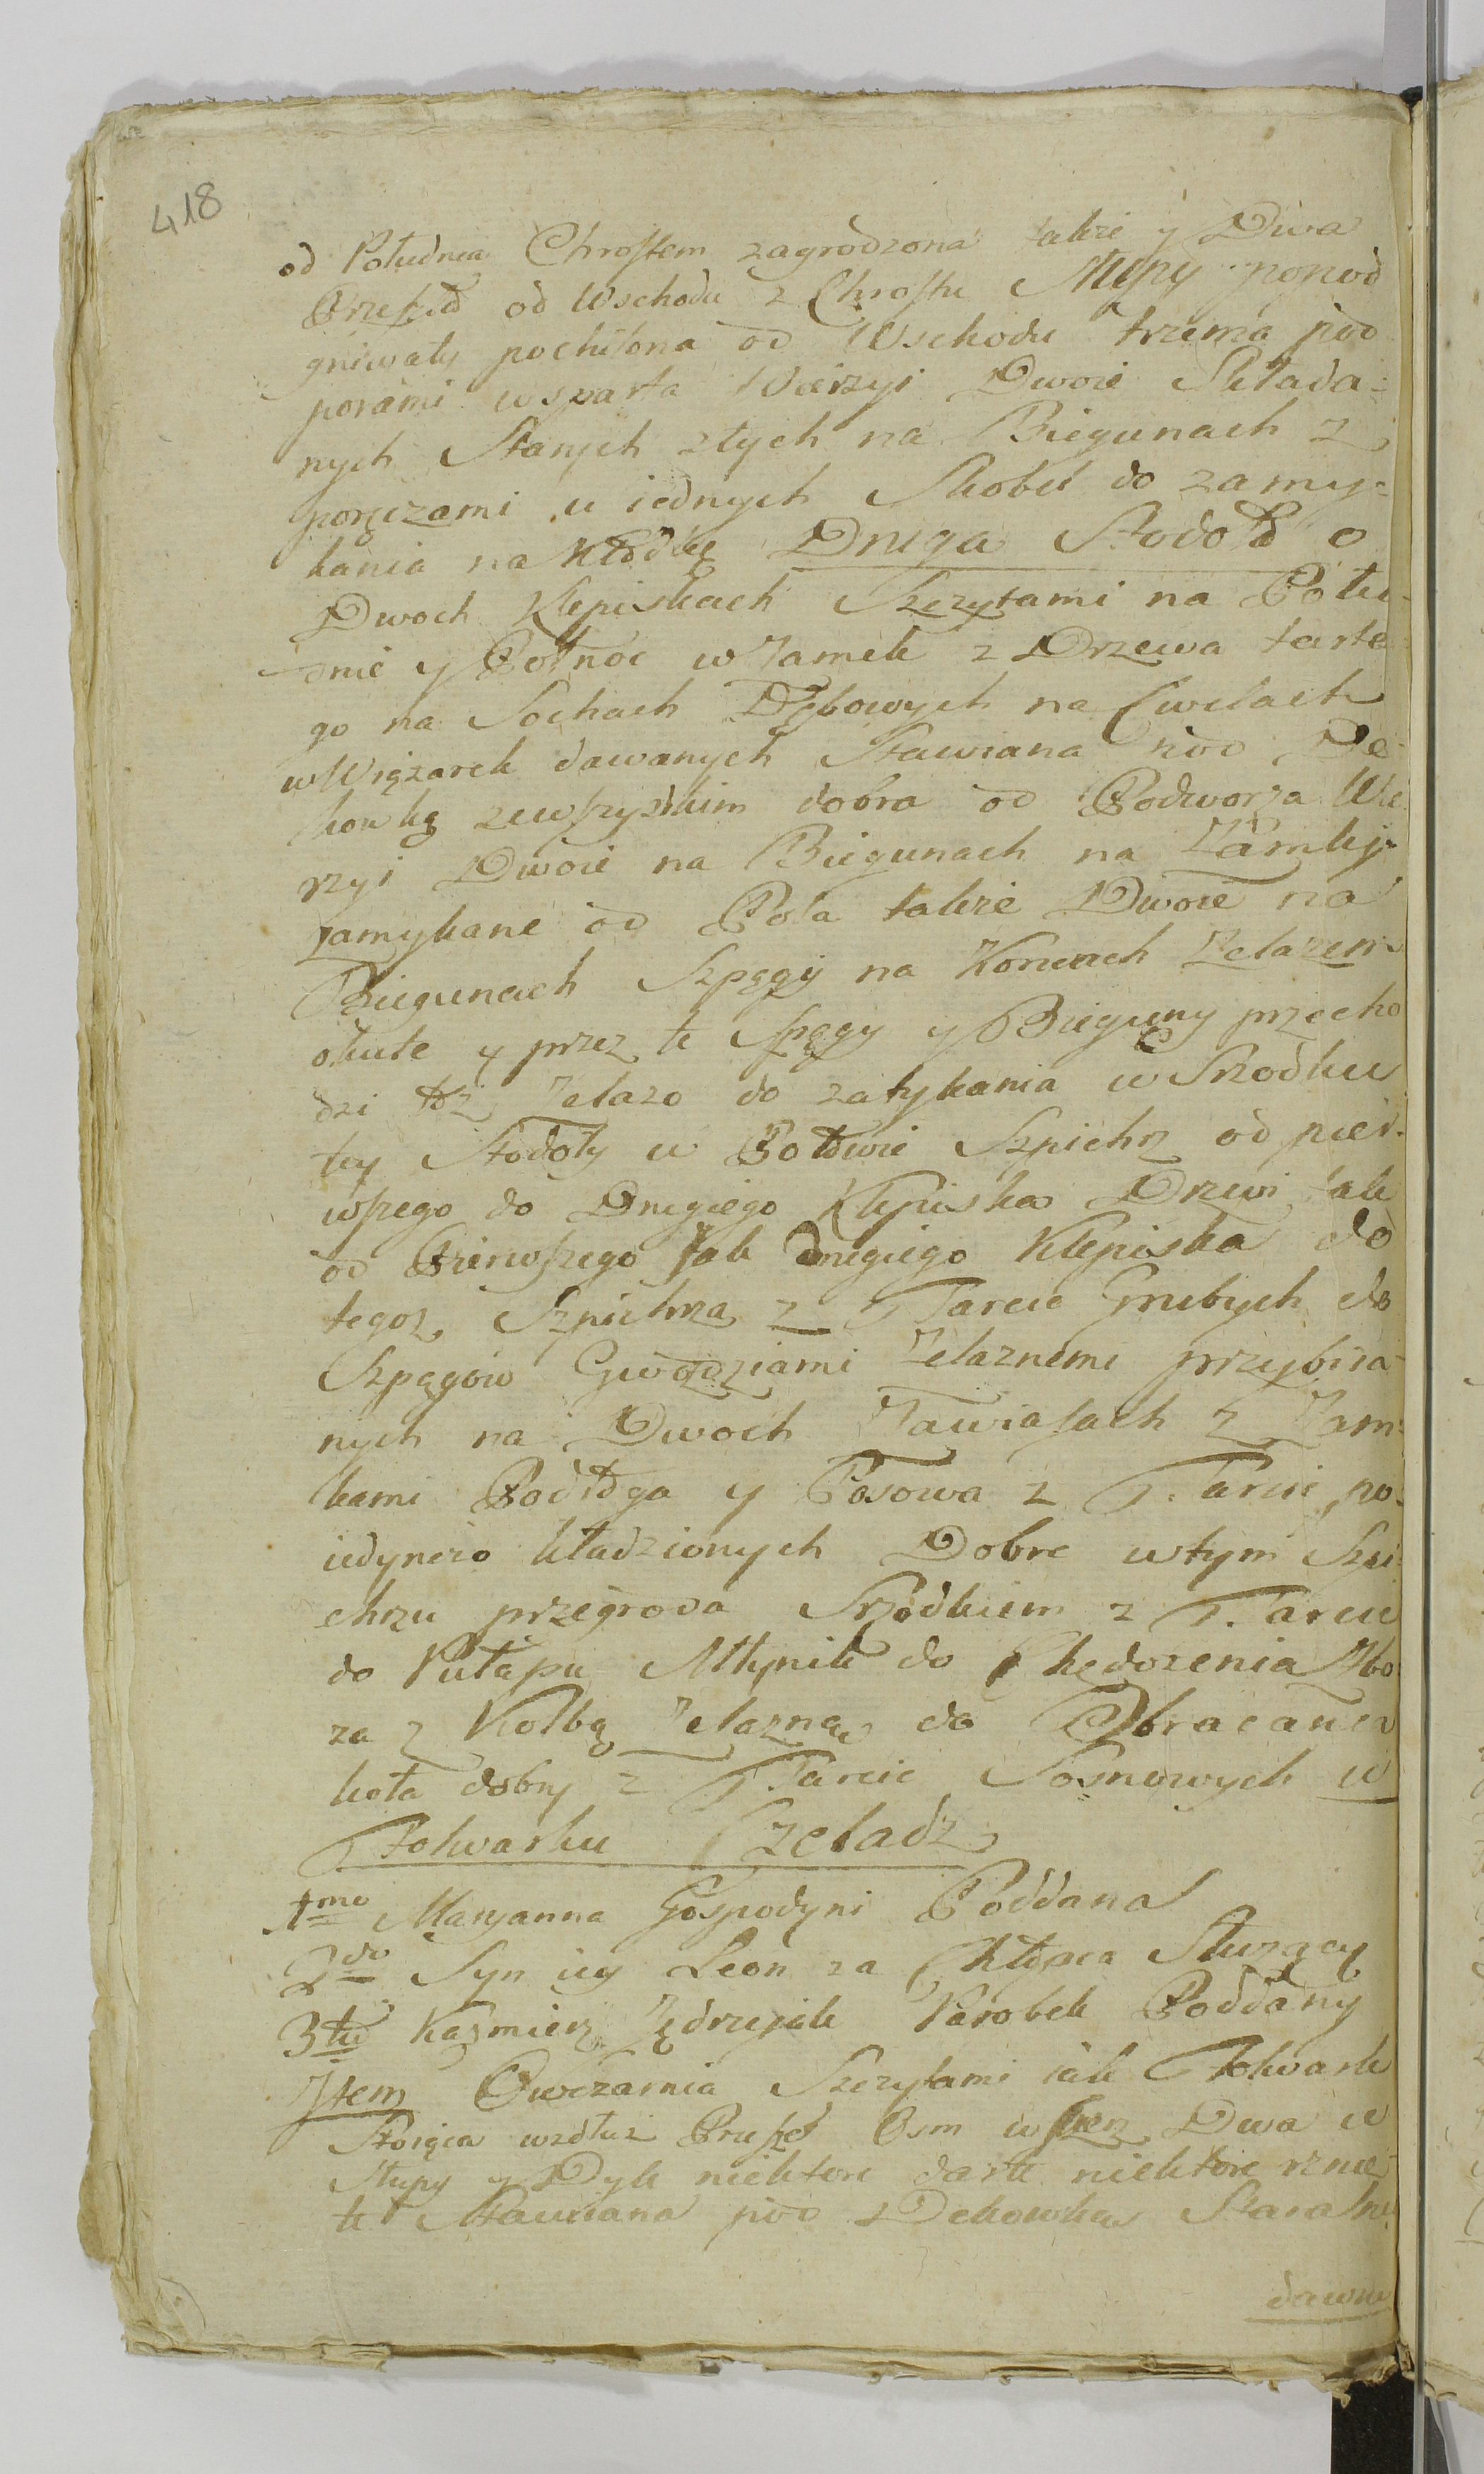 418
od Południa Chrostem zagrodzona także y Dwa
Przęsła od Wschodu z Chrostu Słupy ponad
gniwały pochilona od Wschodu trzema pod
porami wsparta Wierzyi Dwoie Składa=
nych Starych złych na Biegunach z
poręczami u iednych Skobel do zamy=
kania na Kłodkę Druga Stodoła o
Dwoch Klepiskach Szczytami na Połu-
dnie y Połnoc w Zamek z Drzewa tarte
go na Sochach Dębowych na Cwelach
w Wiązarek dawanych Stawiana pod De-
kowką zewszystkim dobra od Podworza Wie
rzyi Dwoie na Biegunach na Zamky
zamykane od Pola także Dwoie na
Biegunach Szpągi na Koncach Zelazem
okute y przez te Szpągy y Bieguny przecho
dzi też Zelazo do zatykania w Srzodku
tey Stodoły w Połowie Szpichrz od pier-
wszego do Drugiego Klepiska Drzwi tak
od Pierwszego jak drugiego Klepiska do
tegoz Szpichrza z Tarcic Grubych do
Szpągow Gwozdziami Zelaznemi przybia-
nych na Dwoch Zawiasach z Zam-
kami Podłoga y Posowa z Tarcic po-
iedynczo kładzionych Dobre w tym Szpi-
chrzu przegroda Srzodkiem z Tarcic
do Pułapu Młynik do Chędozenia Zbo
za z Kolbą Zelazną do Obracania
koła dobry z Tarcic Sosnowych w
Folwarku Czeladz
1mo Maryanna Gospodyni Poddana
2do Syn iey Leon za Chłopca Słuzący
3tio Kazmierz Jędrzejak Parobek Poddany
Item Owczarnia Szczytami iak Folwark
Stoiąca wzdłuz Przęseł Osm wszerz Dwa w
Słupy y Dyle niektore darte niektore rznię
te Stawiana pod Dekowką Stara nie
dawno